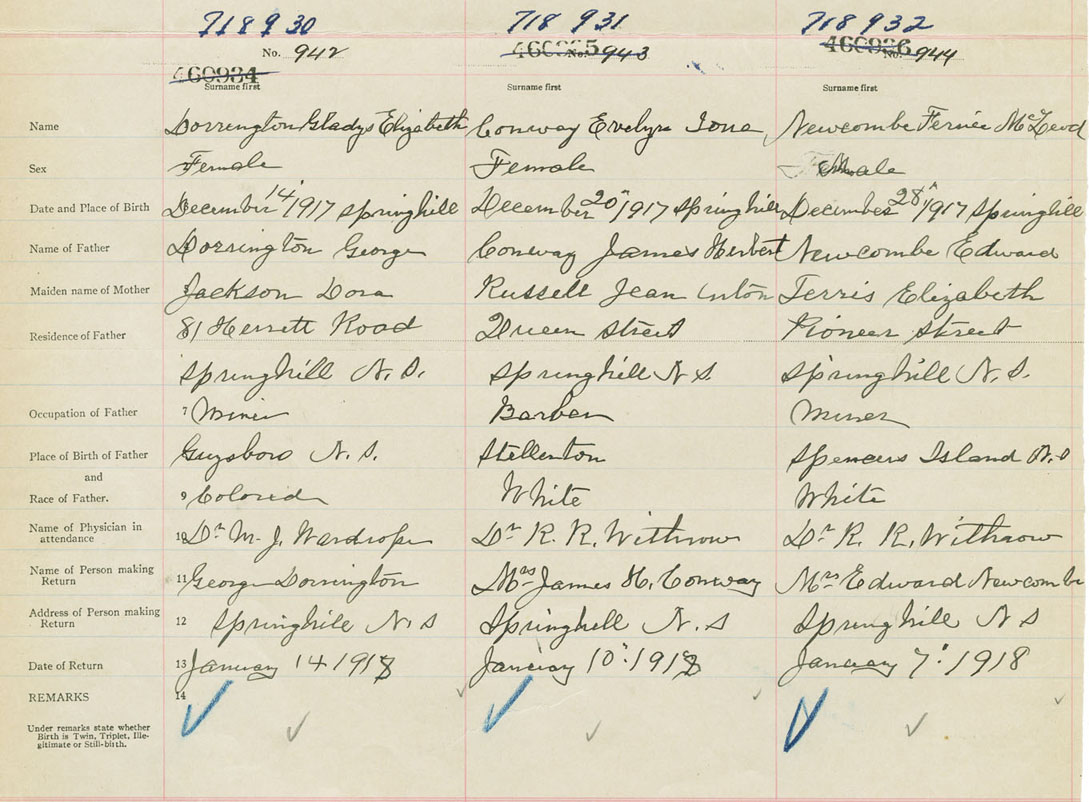 718930 718 931 718 932
No. 942 943 944
460934
Surname first Surname first Surname first
Name Dorrington Gladys Elizabeth Conway Evelyn Iona Newcombe Fernie McLeod
Sex Female Female Female
Date and Place of Birth December 14 1917 Springhill December 20" 1917 Springhill December 28" 1917 Springhill
Name of Father Dorrington George Conway James Herbert Newcombe Edward
Maiden name of Mother Jackson Dora Russell Jean Terris Elizabeth
Residence of Father 81 Herrett Road Queen Street Pioneer Street
Springhill N.S. Springhill N S. Springhill N.S.
Occupation of Father 7 Miner Barber Miner
Place of Birth of Father Guysboro N.S. Stellerton Spencers Island N.S
and
Race of Father. 9 Colored White White
Name of Physician in
attendance 10 Dr M. J. Wardrope Dr R. R. Withrow Dr R. R. Withrow
Name of Person making
Return 11 George Dorrington Mrs James H. Conway Mrs Edward Newcombe
Address of Person making
Return 12 Springhill N.S Springhill N.S Springhill N S
Date of Return 13 January 14 1918 January 10" 1918 January 7" 1918
REMARKS 14
Under remarks state whether
Birth is Twin, Triplet, Ille-
gitimate or Still-birth.